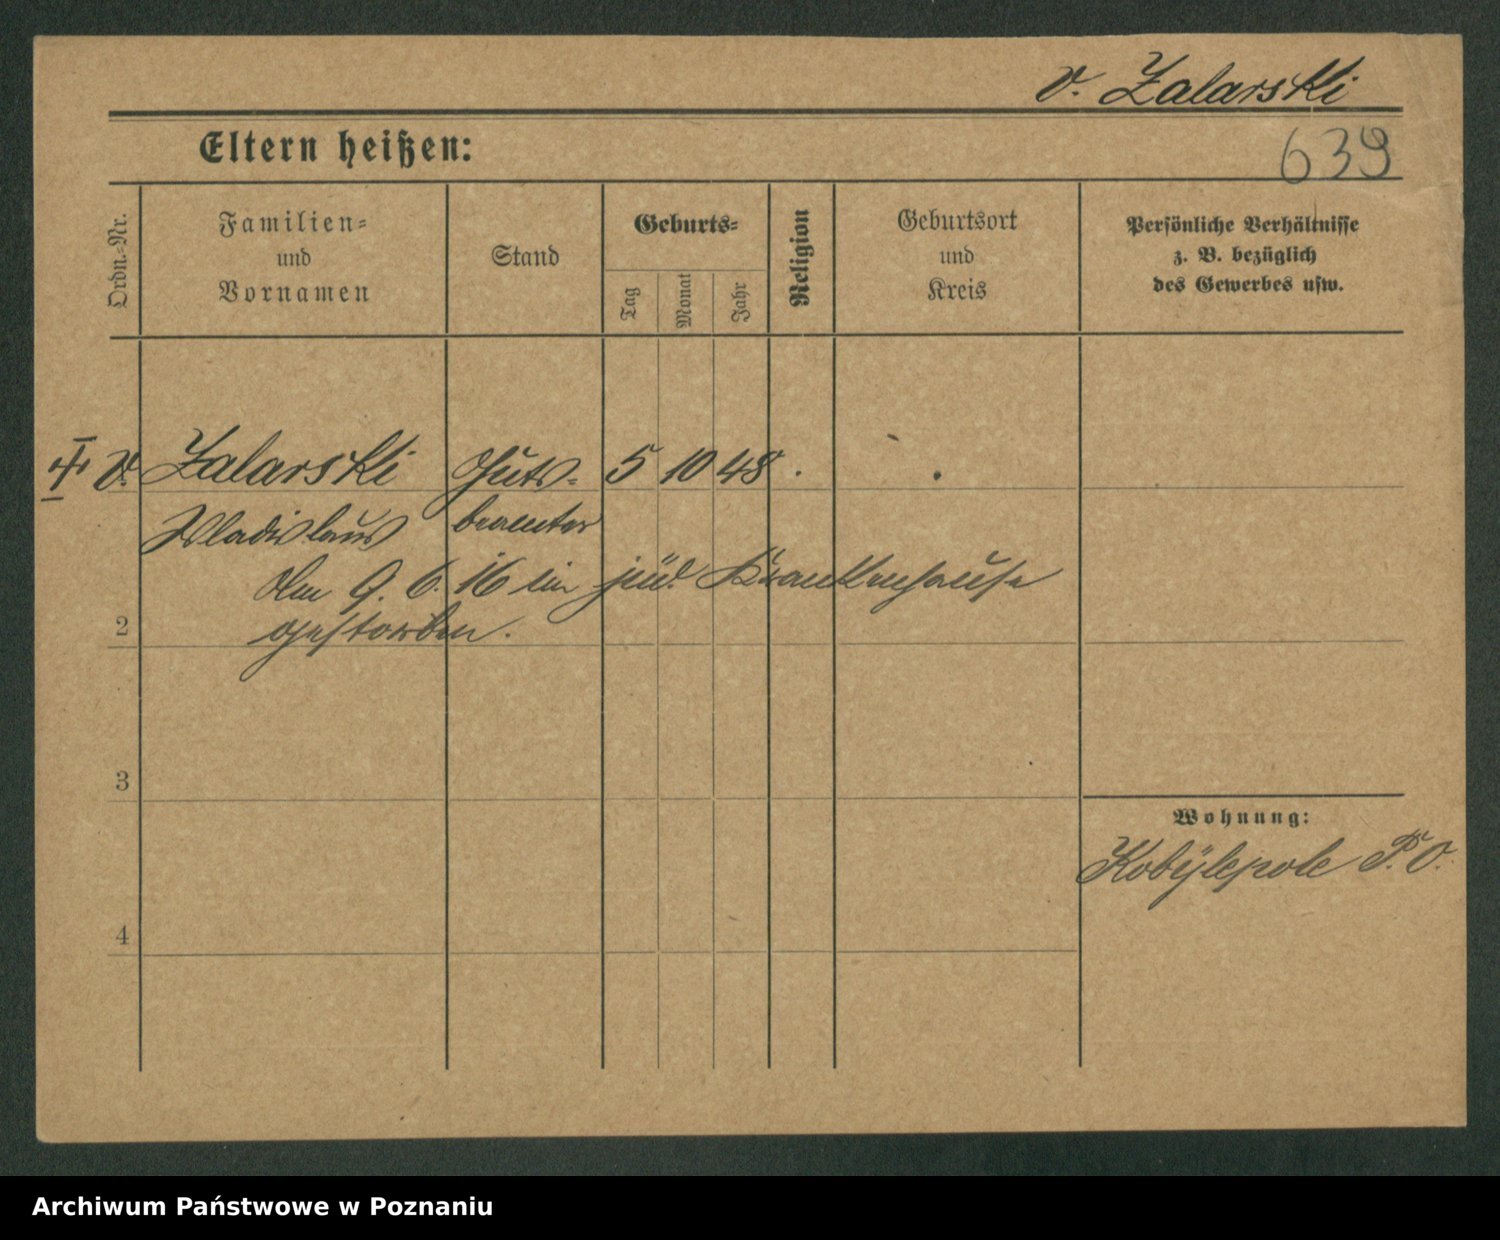 v. Zalarski
Eltern heißen:
639
Ordn.-Nr.
Familien-
und
Vornamen
Stand
Geburts-
Tag
Monat
Jahr
Religion
Geburtsort
und
Kreis
Persönliche Verhältnisse
z. B. bezüglich
des Gewerbes usw.
v. Zalarski Guts- 5 10 48
Wladislaus beamter
Am 9. 6. 16 im jüd. Krankenhause
gestorben.
2
3
Wohnung:
Kobylepole P. O.
4
Archiwum Państwowe w Poznaniu